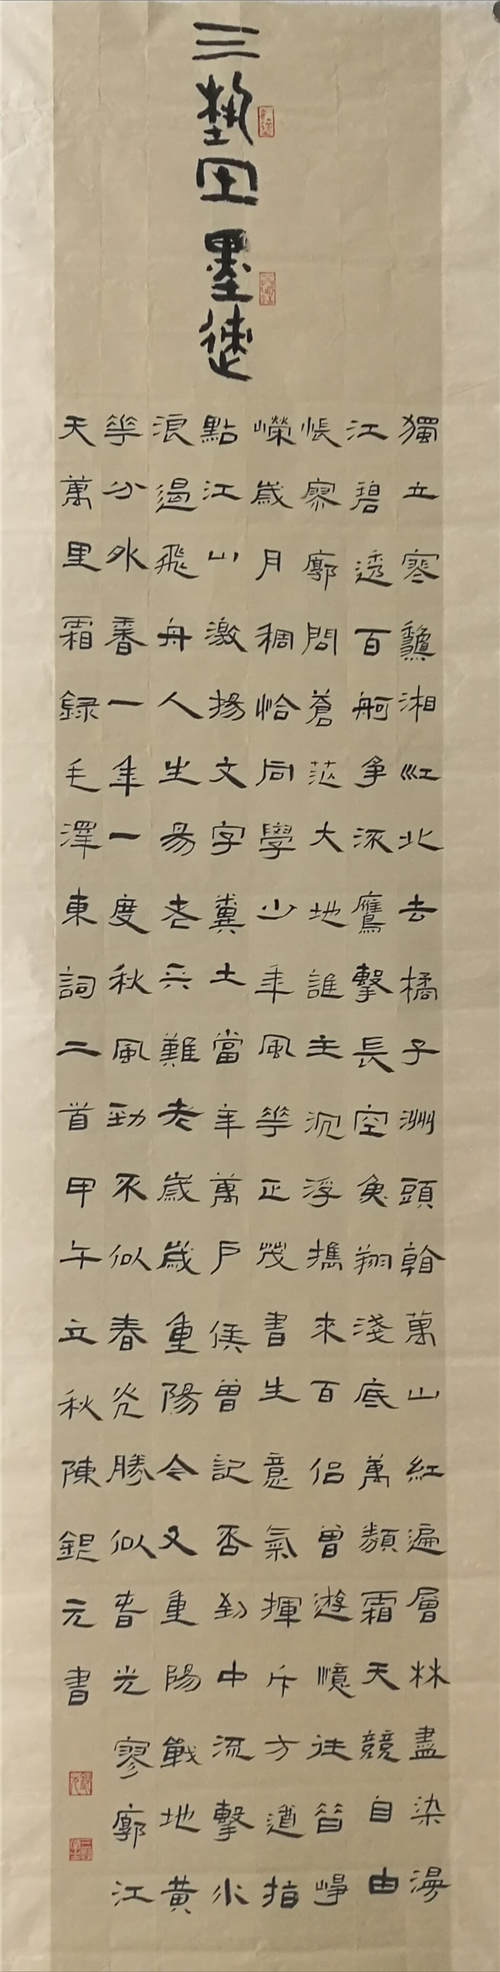 三墨迹
獨立寒龝湘江北去橘子洲頭看萬山紅遍層林盡染漫
江碧透百舸争流鷹擊長空魚翔淺底萬類霜天競自由
悵寥廓問蒼茫大地誰主沉浮攜來百侣曾遊憶往昔崢
嶸歲月稠恰同學少年風華正茂書生意氣揮斥方遒指
點江山激揚文字糞土當年萬户侯曾記否到中流擊水
浪遏飛舟人生易老天難老歲歲重陽今又重陽戰地黄
華分外香一年一度秋風勁不似春光勝似春光寥廓江
天萬里霜録毛澤東詞二首甲午立秋陳錕元書